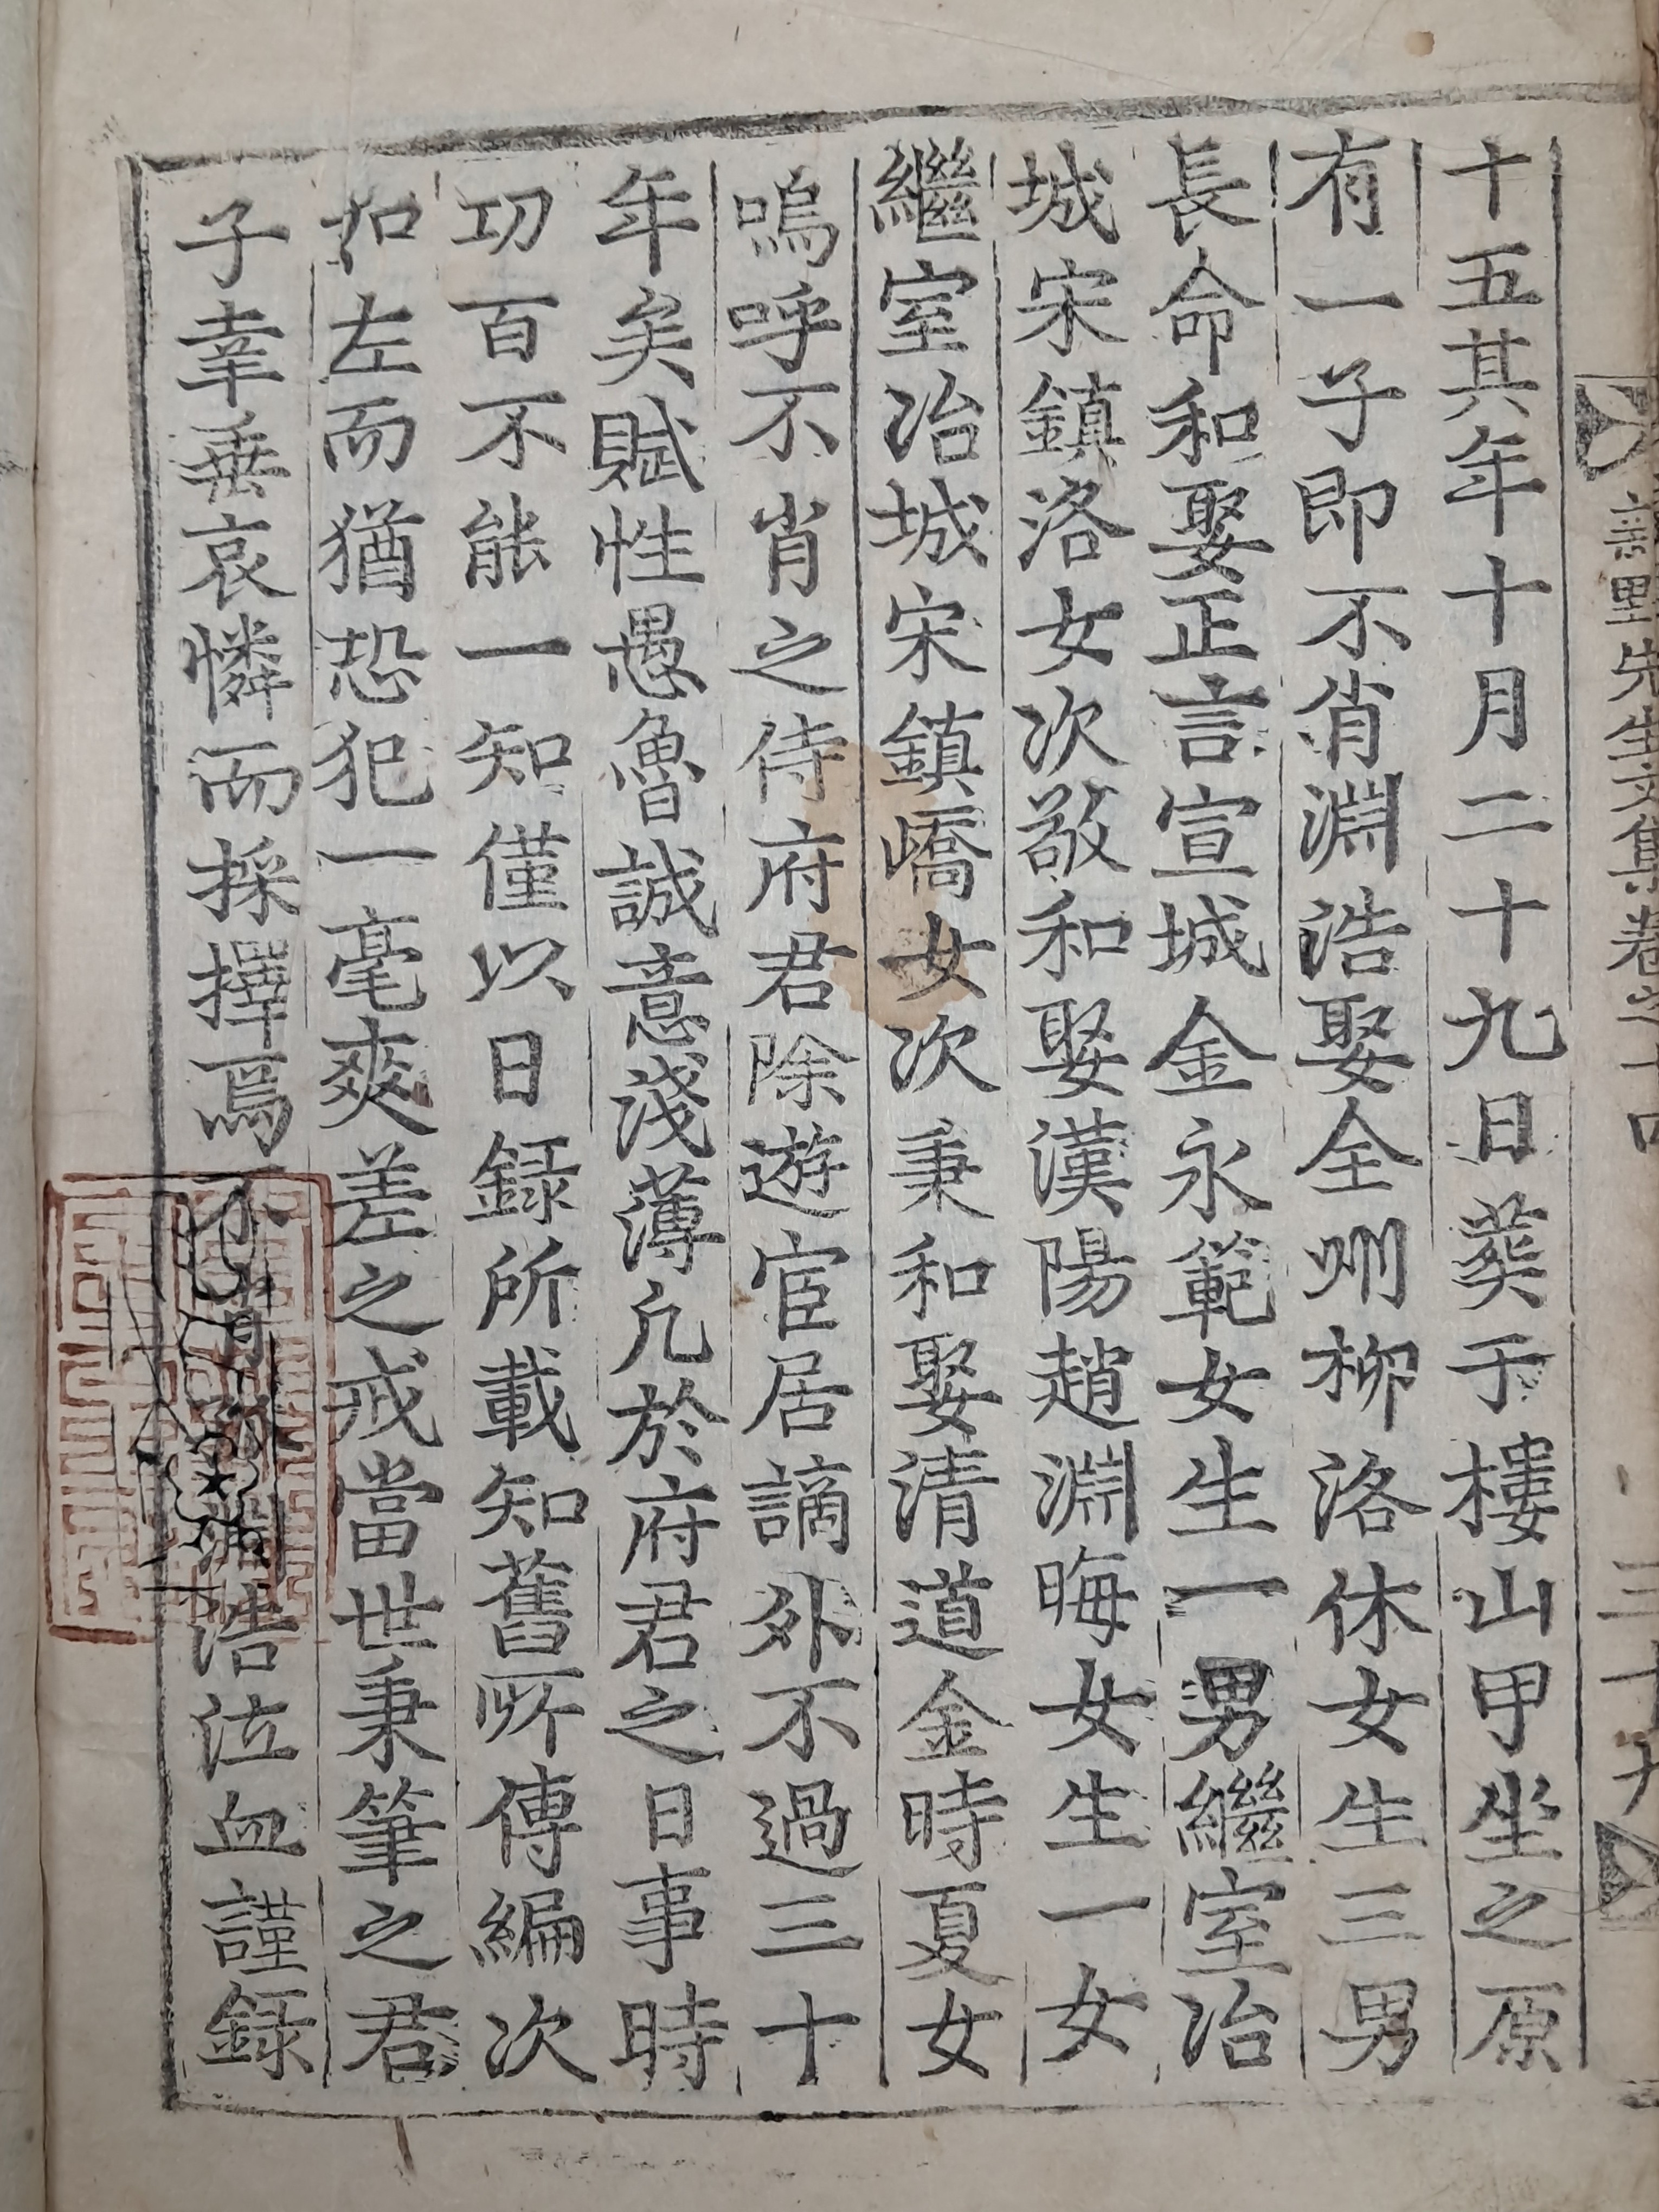 里先生文集卷之十四 三十九
十五其年十月二十九日葬于樓山甲坐之原
有一子即不肖淵浩娶全州柳洛休女生三男
長命和娶正言宣城金永範女生一男繼室冶
城宋鎮洛女次敬和娶漢陽趙淵晦女生一女
繼室冶城宋鎮嶠女次秉和娶清道金時夏女
嗚呼不肖之侍府君除遊宦居謫外不過三十
年矣賦性愚魯誠意淺薄凡於府君之日事時
功百不能一知僅以日録所載知舊所傳編次
如左而猶恐犯一毫爽差之戒當世秉筆之君
子幸垂哀憐而採擇焉不肖孤淵浩泣血謹録